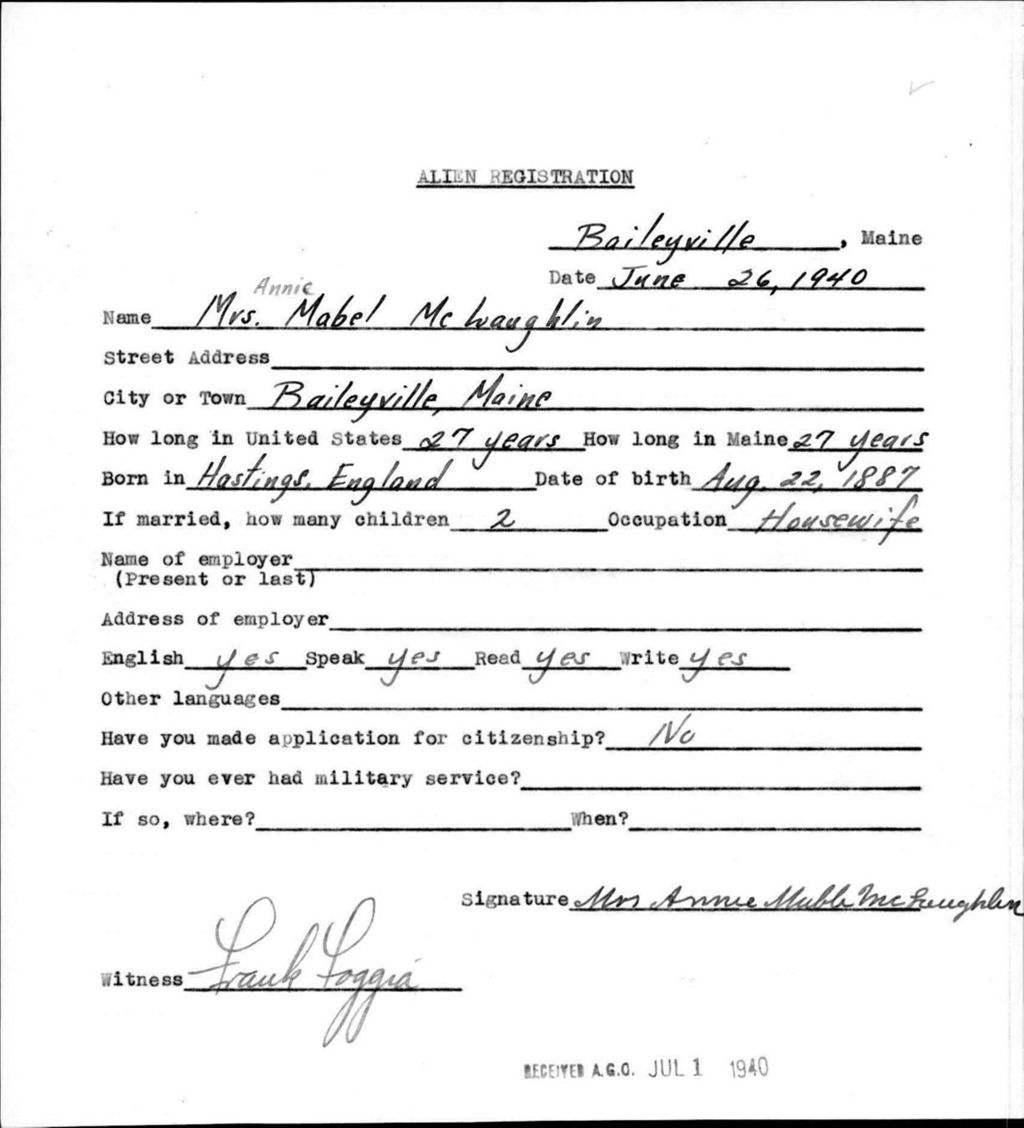 ALIEN REGISTRATION
Baileyville, Maine
Date June 26, 1940
Annie
Name Mrs. Mabel McLaughlin
Street Address
City or Town Baileyville, Maine
How long in United States 27 years How long in Maine 27 years
Born in Hastings, England Date of birth Aug. 22, 1887
If married, how many children 2 Occupation Housewife
Name of employer
(Present or last)
Address of employer
English yes Speak yes Read yes Write yes
Other languages
Have you made application for citizenship? No
Have you ever had military service?
If so, where? When?
Signature Mrs Annie Mable McLaughlin
Witness Frank Loggia
RECEIVED A.G.O. JUL 1 1940